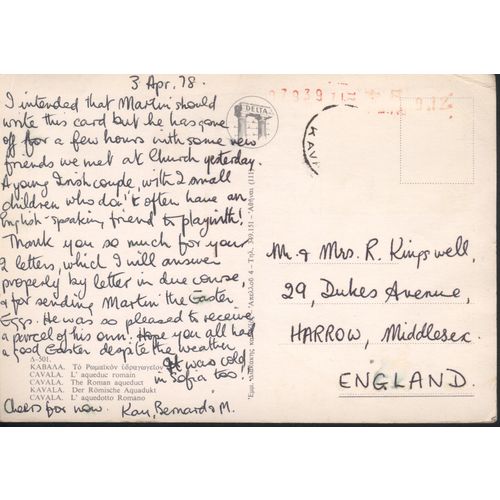 3 Apr. 78.
I intended that Martin should
write this card but he has gone
off for a few hours with some new
friends we met at Church yesterday.
A young Irish couple, with 2 small
children who don't often have an
English-speaking friend to play with!
Thank you so much for your
2 letters, which I will answer
properly by letter in due course,
& for sending Martin the Easter
Eggs. He was so pleased to receive
a parcel of his own. Hope you all had
a good Easter despite the weather.
It was cold
in Sofia too.
Δ-501.
ΚΑΒΑΛΑ. Τό Ρωμαϊκόν ύδραγωγεῖον
CAVALA. L' aqueduc romain
CAVALA. The Roman aqueduct
KAVALA. Der Römische Aquadukt
CAVALA. L' aquedotto Romano
Cheers for now. Kay, Bernard & M.
DELTA
KAVA
Mr. & Mrs. R. Kingswell,
29, Dukes Avenue,
HARROW, Middlesex.
ENGLAND.